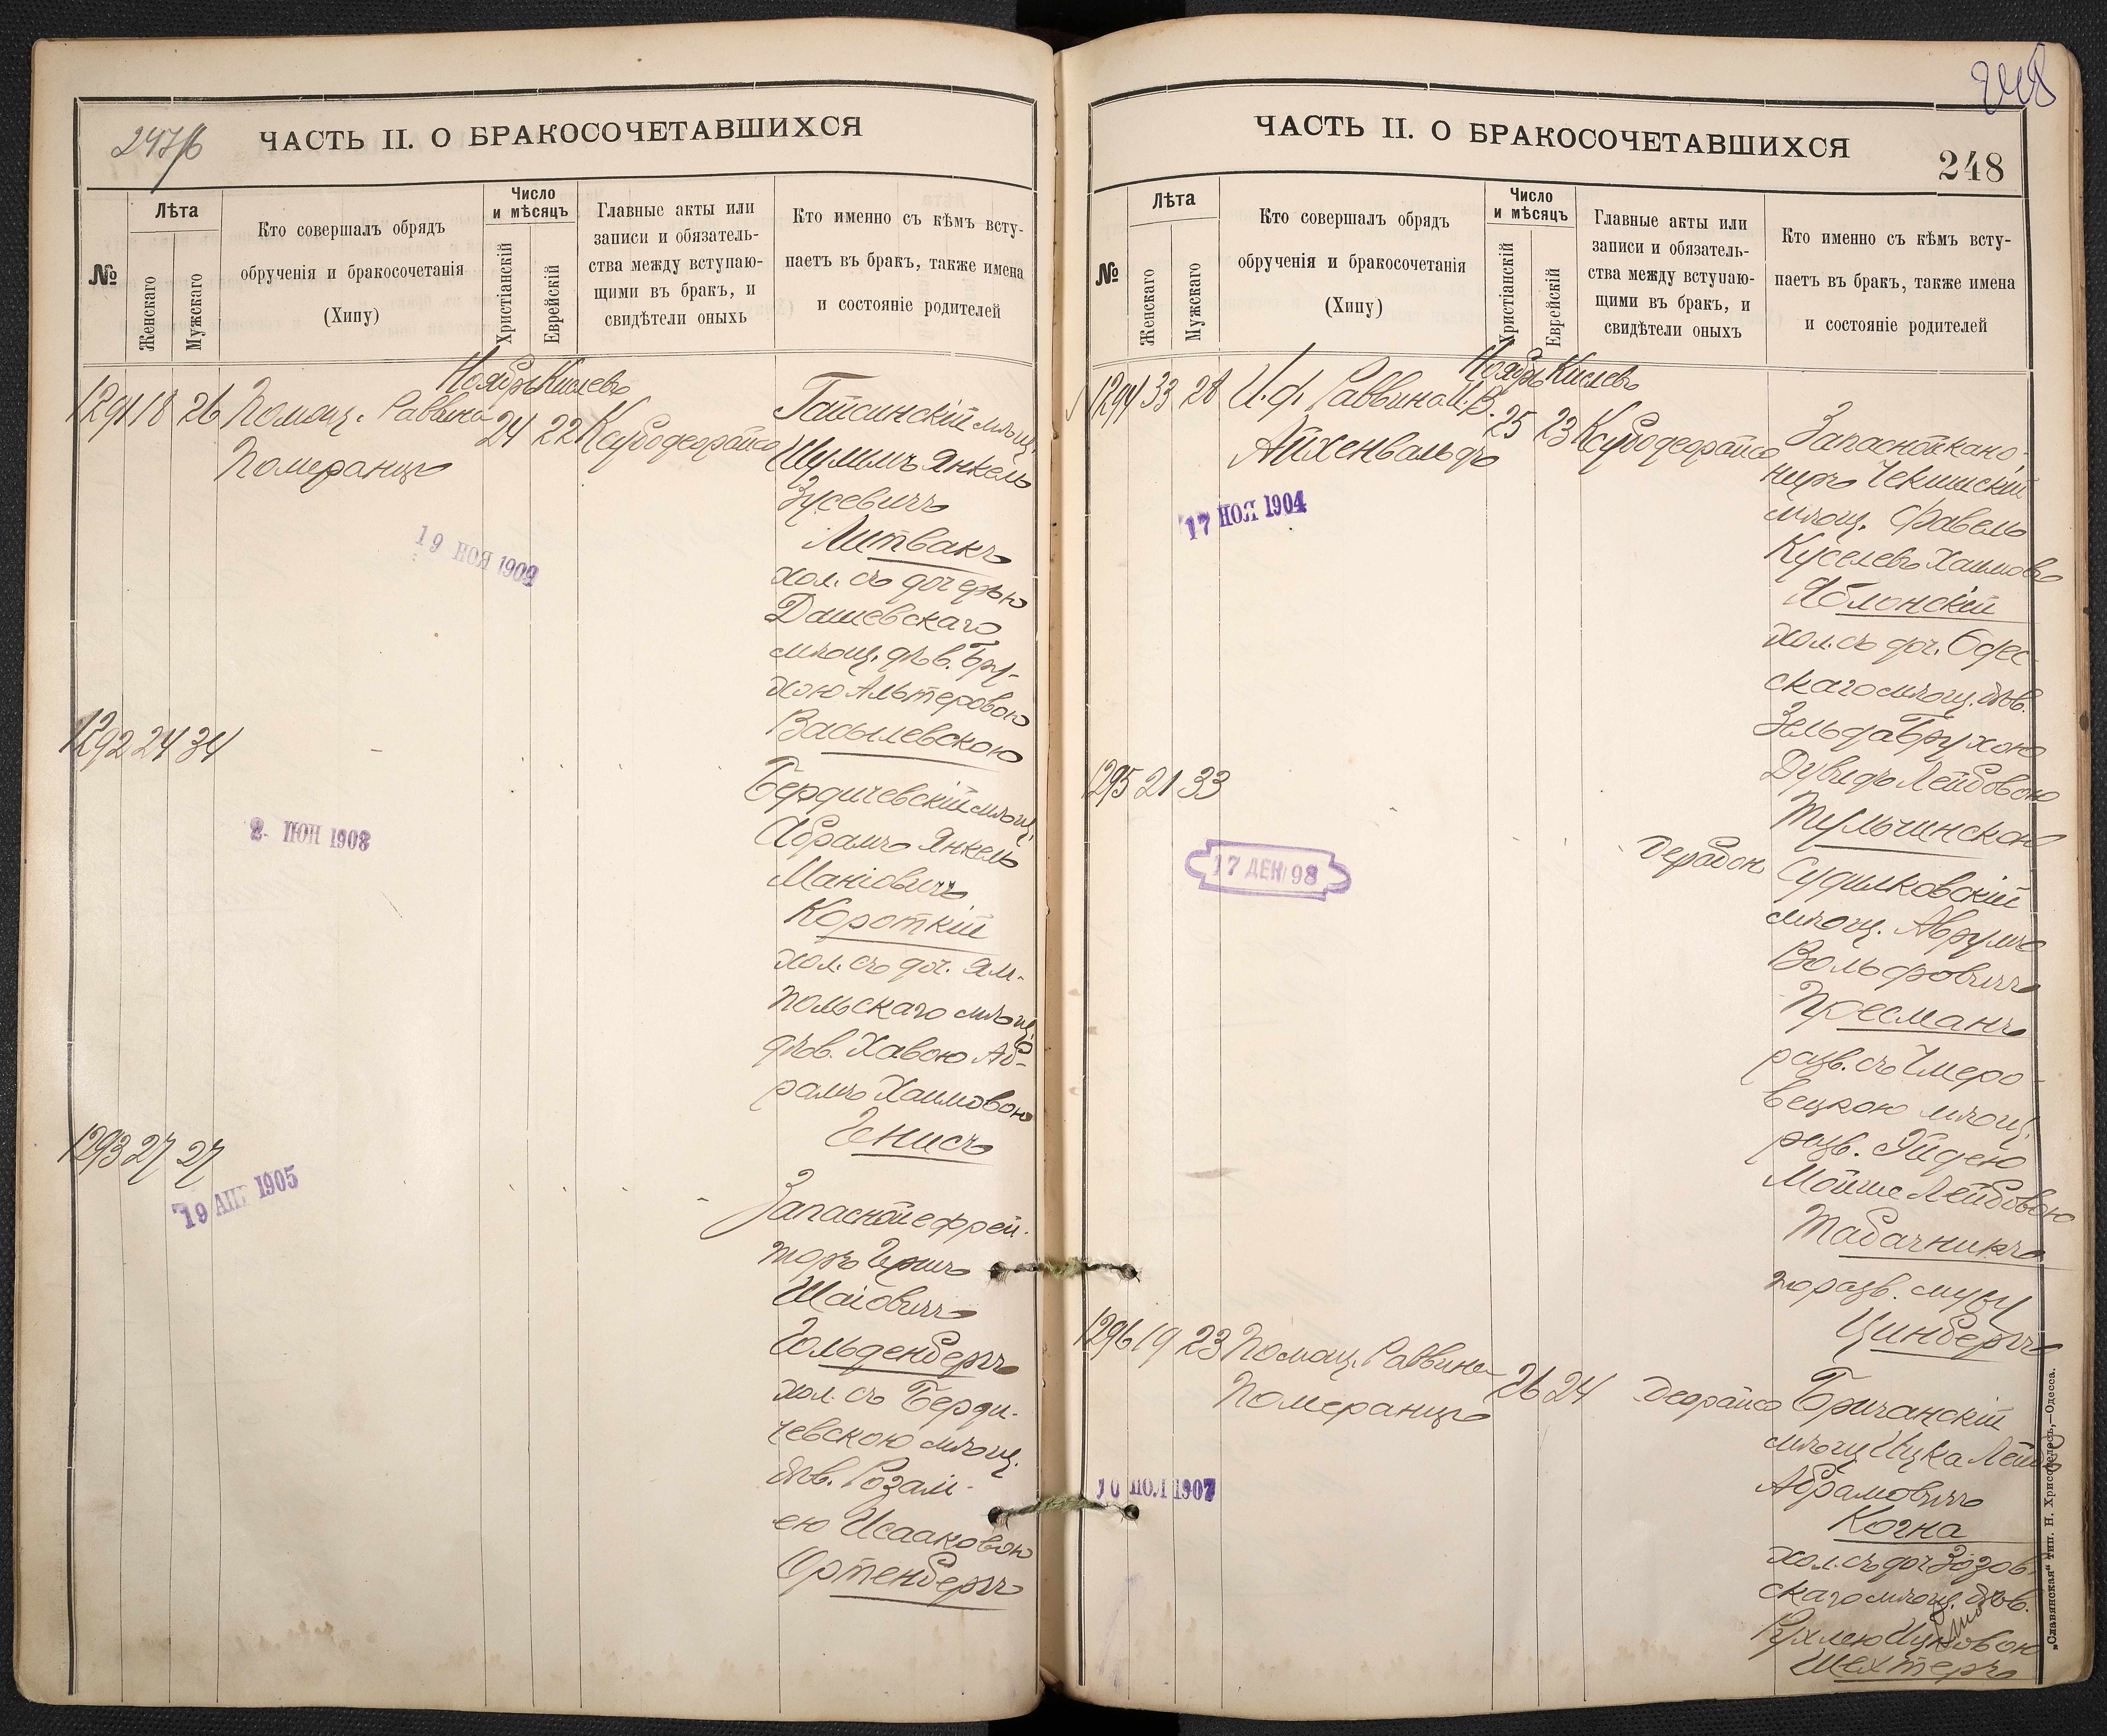 247/б
ЧАСТЬ II. О БРАКОСОЧЕТАВШИХСЯ
№
Лѣта
Женскаго
Мужскаго
Кто совершалъ обрядъ
обрученія и бракосочетанія
(Хипу)
Число
и мѣсяцъ
Христіанскій
Еврейскій
Главные акты или
записи и обязатель-
ства между вступаю-
щими въ бракъ, и
свидѣтели оныхъ
Кто именно съ кѣмъ всту-
паетъ въ бракъ, также имена
и состояніе родителей
Ноябрь Кислевъ
1291 18 26 Помощ. Раввина 24 22 Ксубодеорайсо
Померанцъ
Гайсинскій мѣщ.
Шулимъ Янкель
Зусевичъ
Литвакъ
хол. съ дочерью
Дашевскаго
мѣщ. дѣв. Бру-
хою Альтеровою
Васылевскою
19 НОЯ 1909
1292 24 34
Бердичевскій мѣщ.
Абрамъ Янкель
Маніовичъ
Короткій
хол. съ доч. Ям-
польскаго мѣщ.
дѣв. Хавою Аб-
рамъ Хаимовою
Генисъ
2- ІЮН 1908
1293 27 27
Запасной ефрей-
торъ Гершъ
Шаіовичъ
Гольденбергъ
хол. съ Берди-
чевскою мѣщ.
дѣв. Розалі-
ею Исааковою
Ортенбергъ
19 АПР 1905
248
ЧАСТЬ II. О БРАКОСОЧЕТАВШИХСЯ
248
№
Лѣта
Женскаго
Мужскаго
Кто совершалъ обрядъ
обрученія и бракосочетанія
(Хипу)
Число
и мѣсяцъ
Христіанскій
Еврейскій
Главные акты или
записи и обязатель-
ства между вступаю-
щими въ бракъ, и
свидѣтели оныхъ
Кто именно съ кѣмъ всту-
паетъ въ бракъ, также имена
и состояніе родителей
Ноябрь Кислевъ
1294 33 28 И.д. Раввина И.В. 25 23 Ксубодеорайсо
Айхенвальдъ
Запасной кано-
ниръ
мѣщ. Фавель
Куселевъ Хаимовъ
Яблонскій
хол. съ доч. Одес-
скаго мѣщ. дѣв.
Зельда Брухою
Дувидъ Лейбовою
Тульчинскою
17 НОЯ 1904
1295 21 33
Дерабон
Судилковскій
мѣщ. Аврумъ
Вольфовичъ
Пресманъ
разв. съ Смеро-
вецкою мѣщ.
разв. Эйдею
Мойше Лейбовою
Табачникъ
по разв. мужу
Цинбергъ
17 ДЕК 98
1296 19 23 Помощ. Раввина 26 24 Деорайсо
Померанцъ
Бричанскій
мѣщ. Ицка Лейбъ
Абрамовичъ
Когна
хол. съ доч. Зозов-
скаго мѣщ. дѣв.
Рухлею Ицковою
Шехтеръ
10 ІЮЛ 1907
„Славянская“ тип. Н. Хрисогелосъ,—Одесса.